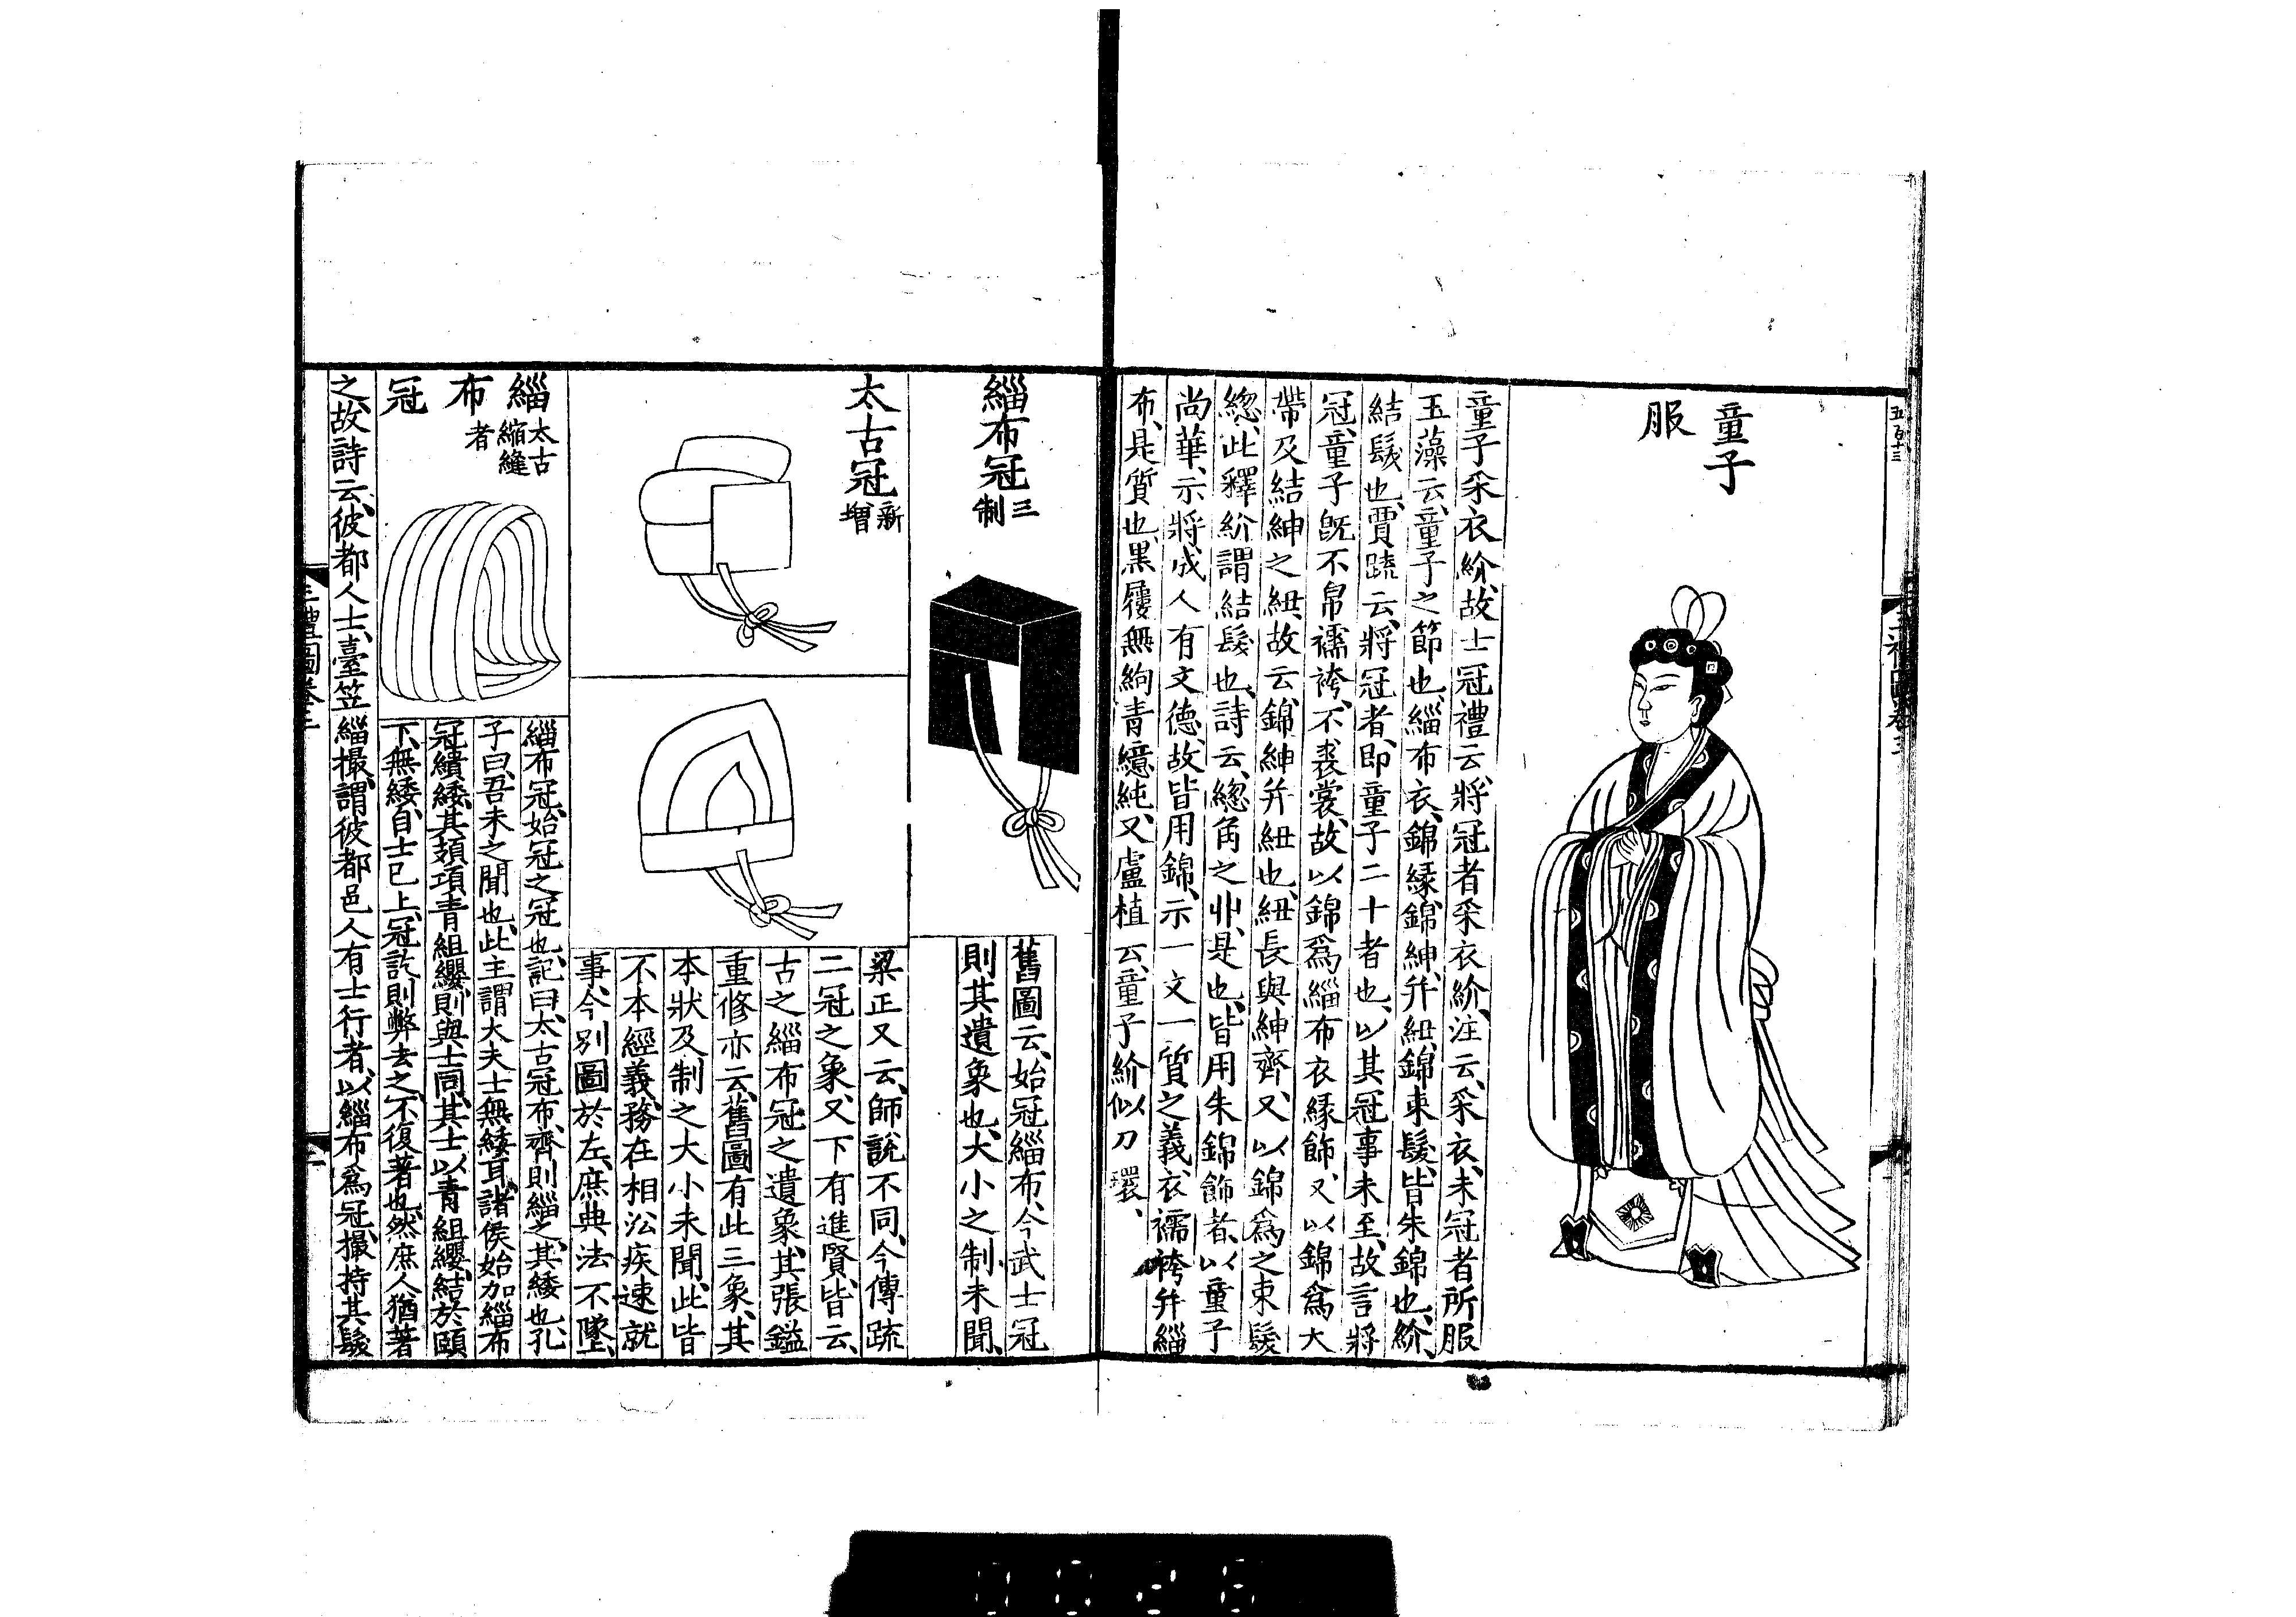 童子
服
童子采衣紒故士冠禮云將冠者采衣紒注云采衣未冠者所服
玉藻云童子之節也緇布衣錦緣錦紳并紐錦束髮皆朱錦也紒
結髮也賈疏云將冠者即童子二十者也以其冠事未至故言將
冠童子旣不帛襦袴不裘裳故以錦爲緇布衣緣飾又以錦爲大
帶及結紳之紐故云錦紳并紐也紐長與紳齊又以錦爲之束髮
緫此釋紒謂結髮也詩云緫角之丱是也皆用朱錦飾者以童子
尚華示將成人有文德故皆用錦示一文一質之義衣襦袴并緇
布是質也黑屨無絇青繶純又盧植云童子紒似刀環
緇布冠三制
舊圖云始冠緇布今武士冠
則其遺象也大小之制未聞
太古冠新增
梁正又云師說不同今傳疏
二冠之象又下有進賢皆云
古之緇布冠之遺象其張鎰
重修亦云舊圖有此三象其
本狀及制之大小未聞此皆
不本經義務在相沿疾速就
事今別圖於左庶典法不墜
緇布冠太古縮縫者
緇布冠始冠之冠也記曰太古冠布齊則緇之其緌也孔
子曰吾未之聞也此主謂大夫士無緌耳諸侯始加緇布
冠繢緌其頍項青組纓則與士同其士以青組纓結於頤
下無緌自士已上冠訖則弊去之不復著也然庶人猶著
之故詩云彼都人士臺笠緇撮謂彼都邑人有士行者以緇布爲冠撮持其髮
三禮圖卷三